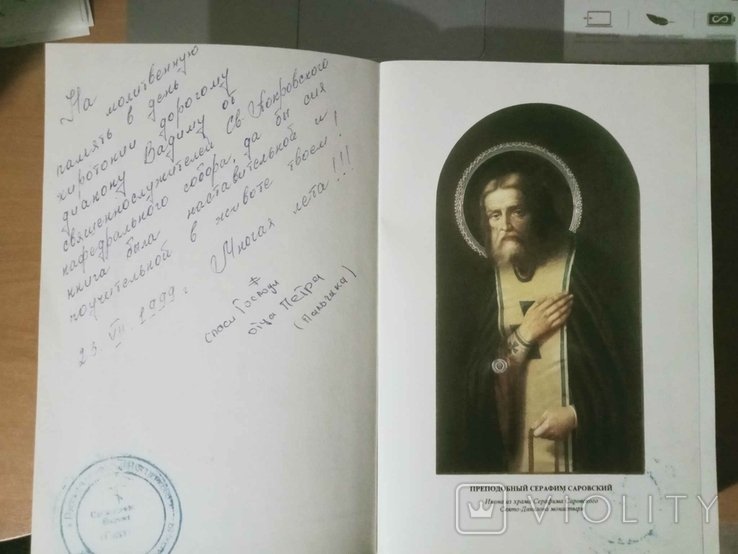 На молитвенную
память в день
хиротонии дорогому
диакону Вадиму от
священнослужителей Св-Покровского
кафедрального собора, да бы сия
книга была наставительной и
поучительной в животе твоем!
Многая лета!!!
23. VII. 1999 г
спаси Господи
отца Петра
ПРЕПОДОБНЫЙ СЕРАФИМ САРОВСКИЙ
Икона из храма Серафима Саровского
Свято-Данилова монастыря
VIOLITY